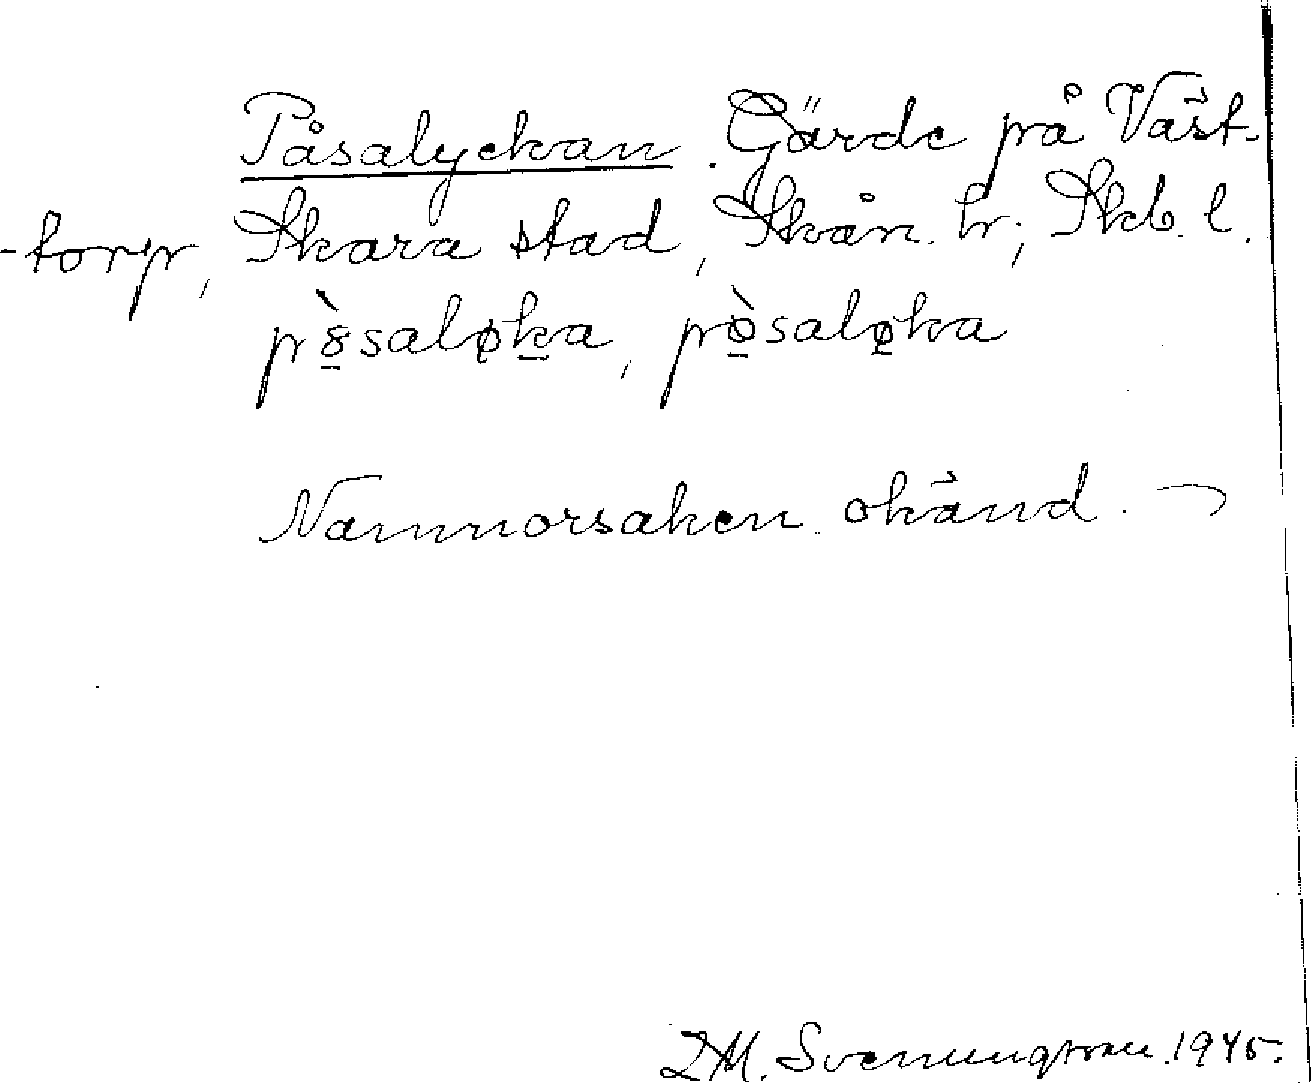 Påsalyckan. Gärde på Väst-
-torp, Skara stad, Skån. hr; Skb. l.
pȣ̀saløka, pòsaløka
Namnorsaken okänd. ¬
Svenungsson. 1945.